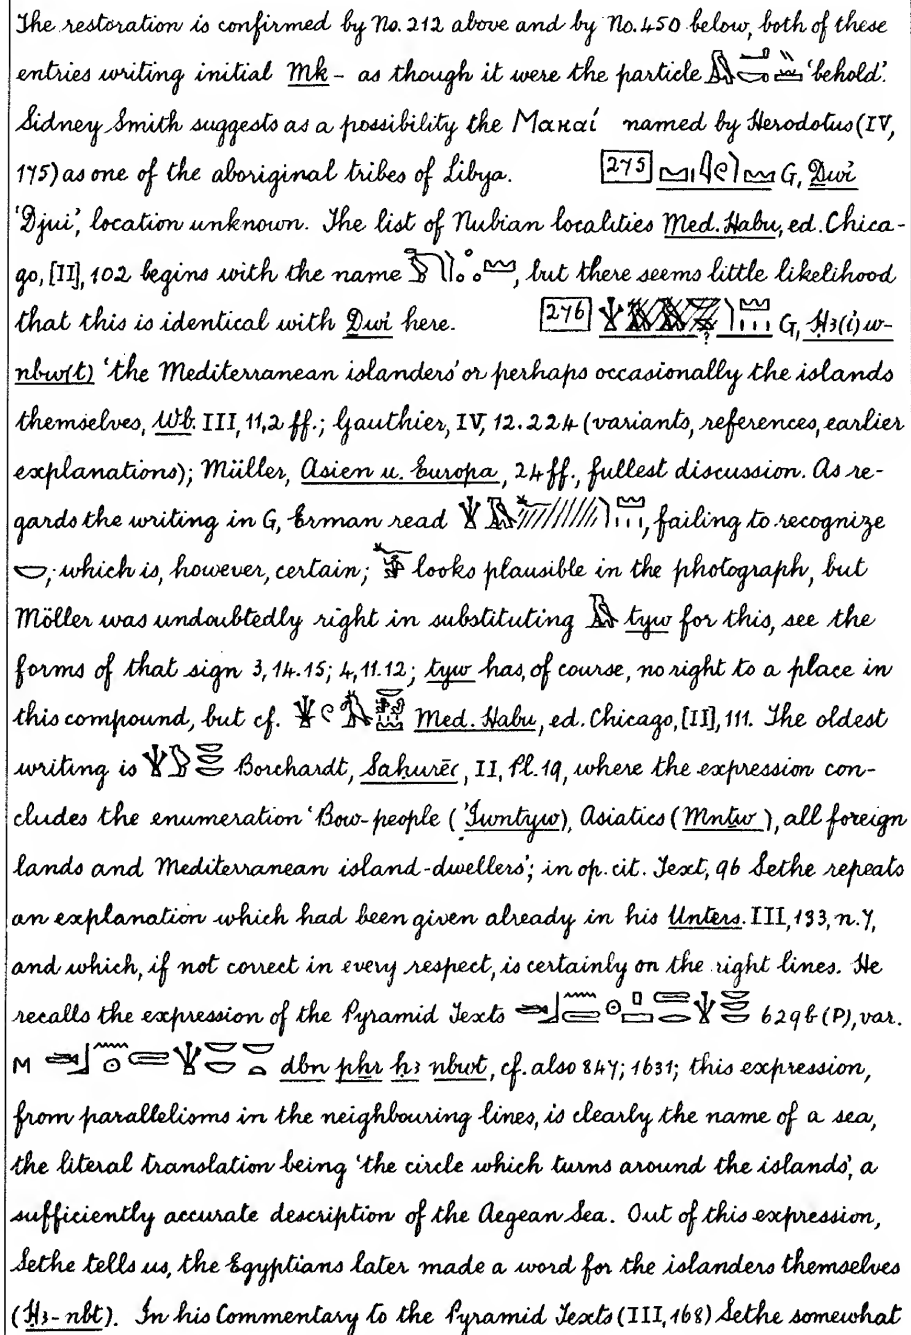 The restoration is confirmed by No. 212 above and by No. 450 below, both of these
entries writing initial Mk- as though it were the particle 'behold'.
Sidney Smith suggests as a possibility the Μακαί named by Herodotus (IV,
175) as one of the aboriginal tribes of Libya. 275 G, Ḏwỉ
'Djui', location unknown. The list of Nubian localities Med. Habu, ed. Chica-
go, [II], 102 begins with the name , but there seems little likelihood
that this is identical with Ḏwỉ here. 276 G, Ḥꜣ(i)w-
nbw(t) 'the Mediterranean islanders' or perhaps occasionally the islands
themselves, Wb. III, 11,2 ff.; Gauthier, IV, 12. 224 (variants, references, earlier
explanations); Müller, Asien u. Europa, 24 ff., fullest discussion. As re-
gards the writing in G, Erman read , failing to recognize
, which is, however, certain; looks plausible in the photograph, but
Möller was undoubtedly right in substituting tyw for this, see the
forms of that sign 3,14.15; 4,11.12; tyw has, of course, no right to a place in
this compound, but cf. Med. Habu, ed. Chicago, [II], 111. The oldest
writing is Borchardt, Sahurēꜥ, II, Pl. 19, where the expression con-
cludes the enumeration 'Bow-people (ꞽwntyw), Asiatics (Mnṯw), all foreign
lands and Mediterranean island-dwellers'; in op. cit. Text, 96 Sethe repeats
an explanation which had been given already in his Unters. III, 133, n. 7,
and which, if not correct in every respect, is certainly on the right lines. He
recalls the expression of the Pyramid Texts 629b (P), var.
M dbn pḫr ḥꜣ nbwt, cf. also 847; 1631; this expression,
from parallelisms in the neighbouring lines, is clearly the name of a sea,
the literal translation being 'the circle which turns around the islands', a
sufficiently accurate description of the Aegean Sea. Out of this expression,
Sethe tells us, the Egyptians later made a word for the islanders themselves
(Ḥꜣ-nbt). In his Commentary to the Pyramid Texts (III, 168) Sethe somewhat